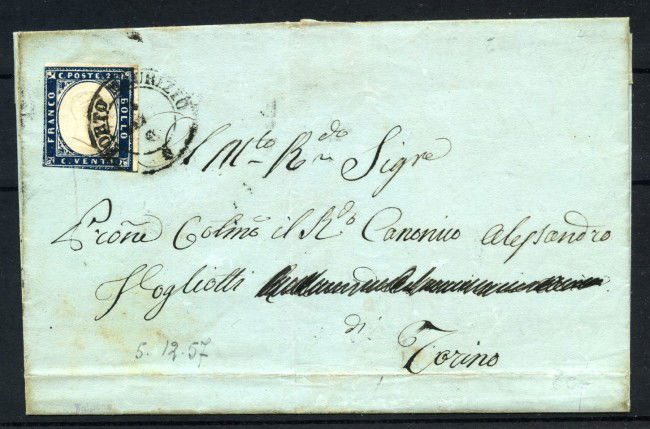 C. POSTE. 20
FRANCO
BOLLO
C. VENTI
PORTO MAURIZIO
Al M.to R.do Sigre
Prone Colmo il R.do Canonico Alessandro
Vogliotti
di
Torino
5. 12. 57